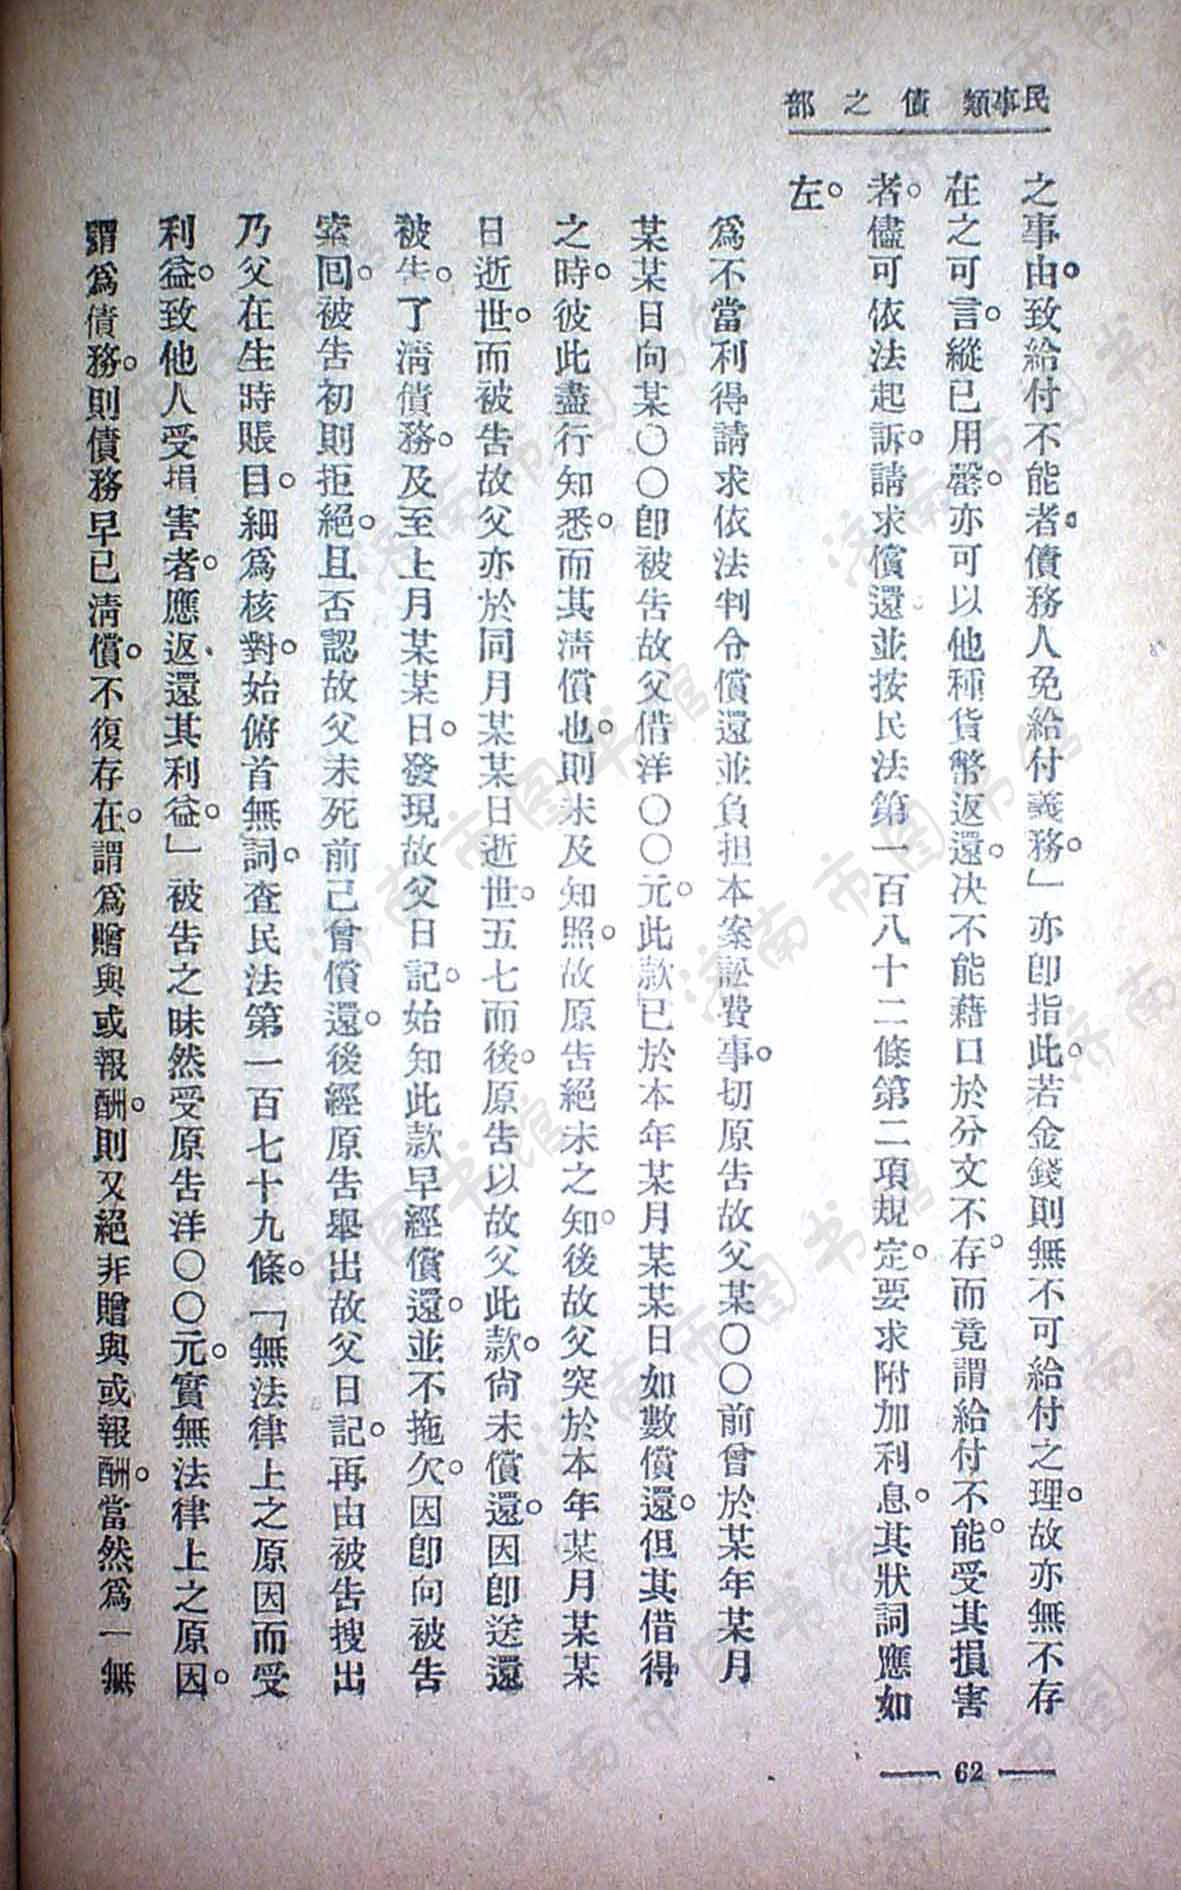 部 之 債 類事民
之事由。致給付不能者。債務人免給付義務。」亦卽指此。若金錢則無不可給付之理。故亦無不存
在之可言。縱已用罄。亦可以他種貨幣返還。决不能藉口於分文不存。而竟謂給付不能。受其損害
者。儘可依法起訴。請求償還。並按民法第一百八十二條第二項規定。要求附加利息。其狀詞應如
左。
爲不當利得請求依法判令償還並負担本案訟費事。切原告故父某〇〇前曾於某年某月
某某日向某〇〇卽被告故父借洋〇〇元。此款已於本年某月某某日如數償還。但其借得
之時。彼此盡行知悉。而其淸償也。則未及知照。故原告絕未之知。後故父突於本年某月某某
日逝世。而被告故父亦於同月某某日逝世。五七而後。原告以故父此款。尙未償還。因卽送還
被告。了淸債務。及至上月某某日。發現故父日記。始知此款早經償還。並不拖欠。因卽向被告
索回。被告初則拒絕。且否認故父未死前已曾償還。後經原告舉出故父日記。再由被告搜出
乃父在生時賬目。細爲核對。始俯首無詞。查民法第一百七十九條。「無法律上之原因而受
利益。致他人受損害者。應返還其利益。」被告之昧然受原告洋〇〇元。實無法律上之原因。
謂爲債務。則債務早已淸償。不復存在。謂爲贈與或報酬。則又絕非贈與或報酬。當然爲一無
62
济南市图书馆